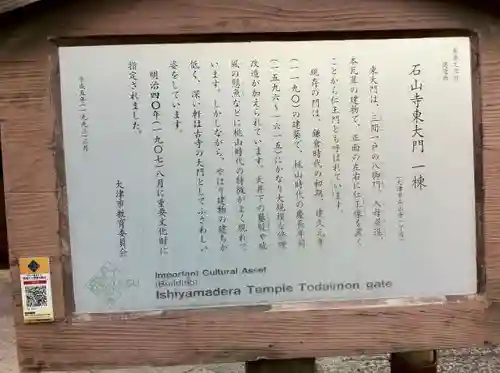 重要文化財
建造物
石山寺東大門 一棟
(大津市石山寺一丁目)
東大門は、三間一戸の八脚門、入母屋造、
本瓦葺の建物で、正面の左右に仁王像を置く
ことから仁王門とも呼ばれています。
現存の門は、鎌倉時代の初期、建久元年
(一一九〇)の建築で、桃山時代の慶長年間
(一五九六〜一六一五)にかなり大規模な修理
改造が加えられています。天井下の蟇股や破
風の懸魚などに桃山時代の特徴がよく現れて
います。しかしながら、やはり建物の建ちが
低く、深い軒は古寺の大門としてふさわしい
姿をしています。
明治四〇年(一九〇七)八月に重要文化財に
指定されました。
大津市教育委員会
平成五年(一九九三)三月
Important Cultural Asset
(Building)
Ishiyamadera Temple Todaimon gate